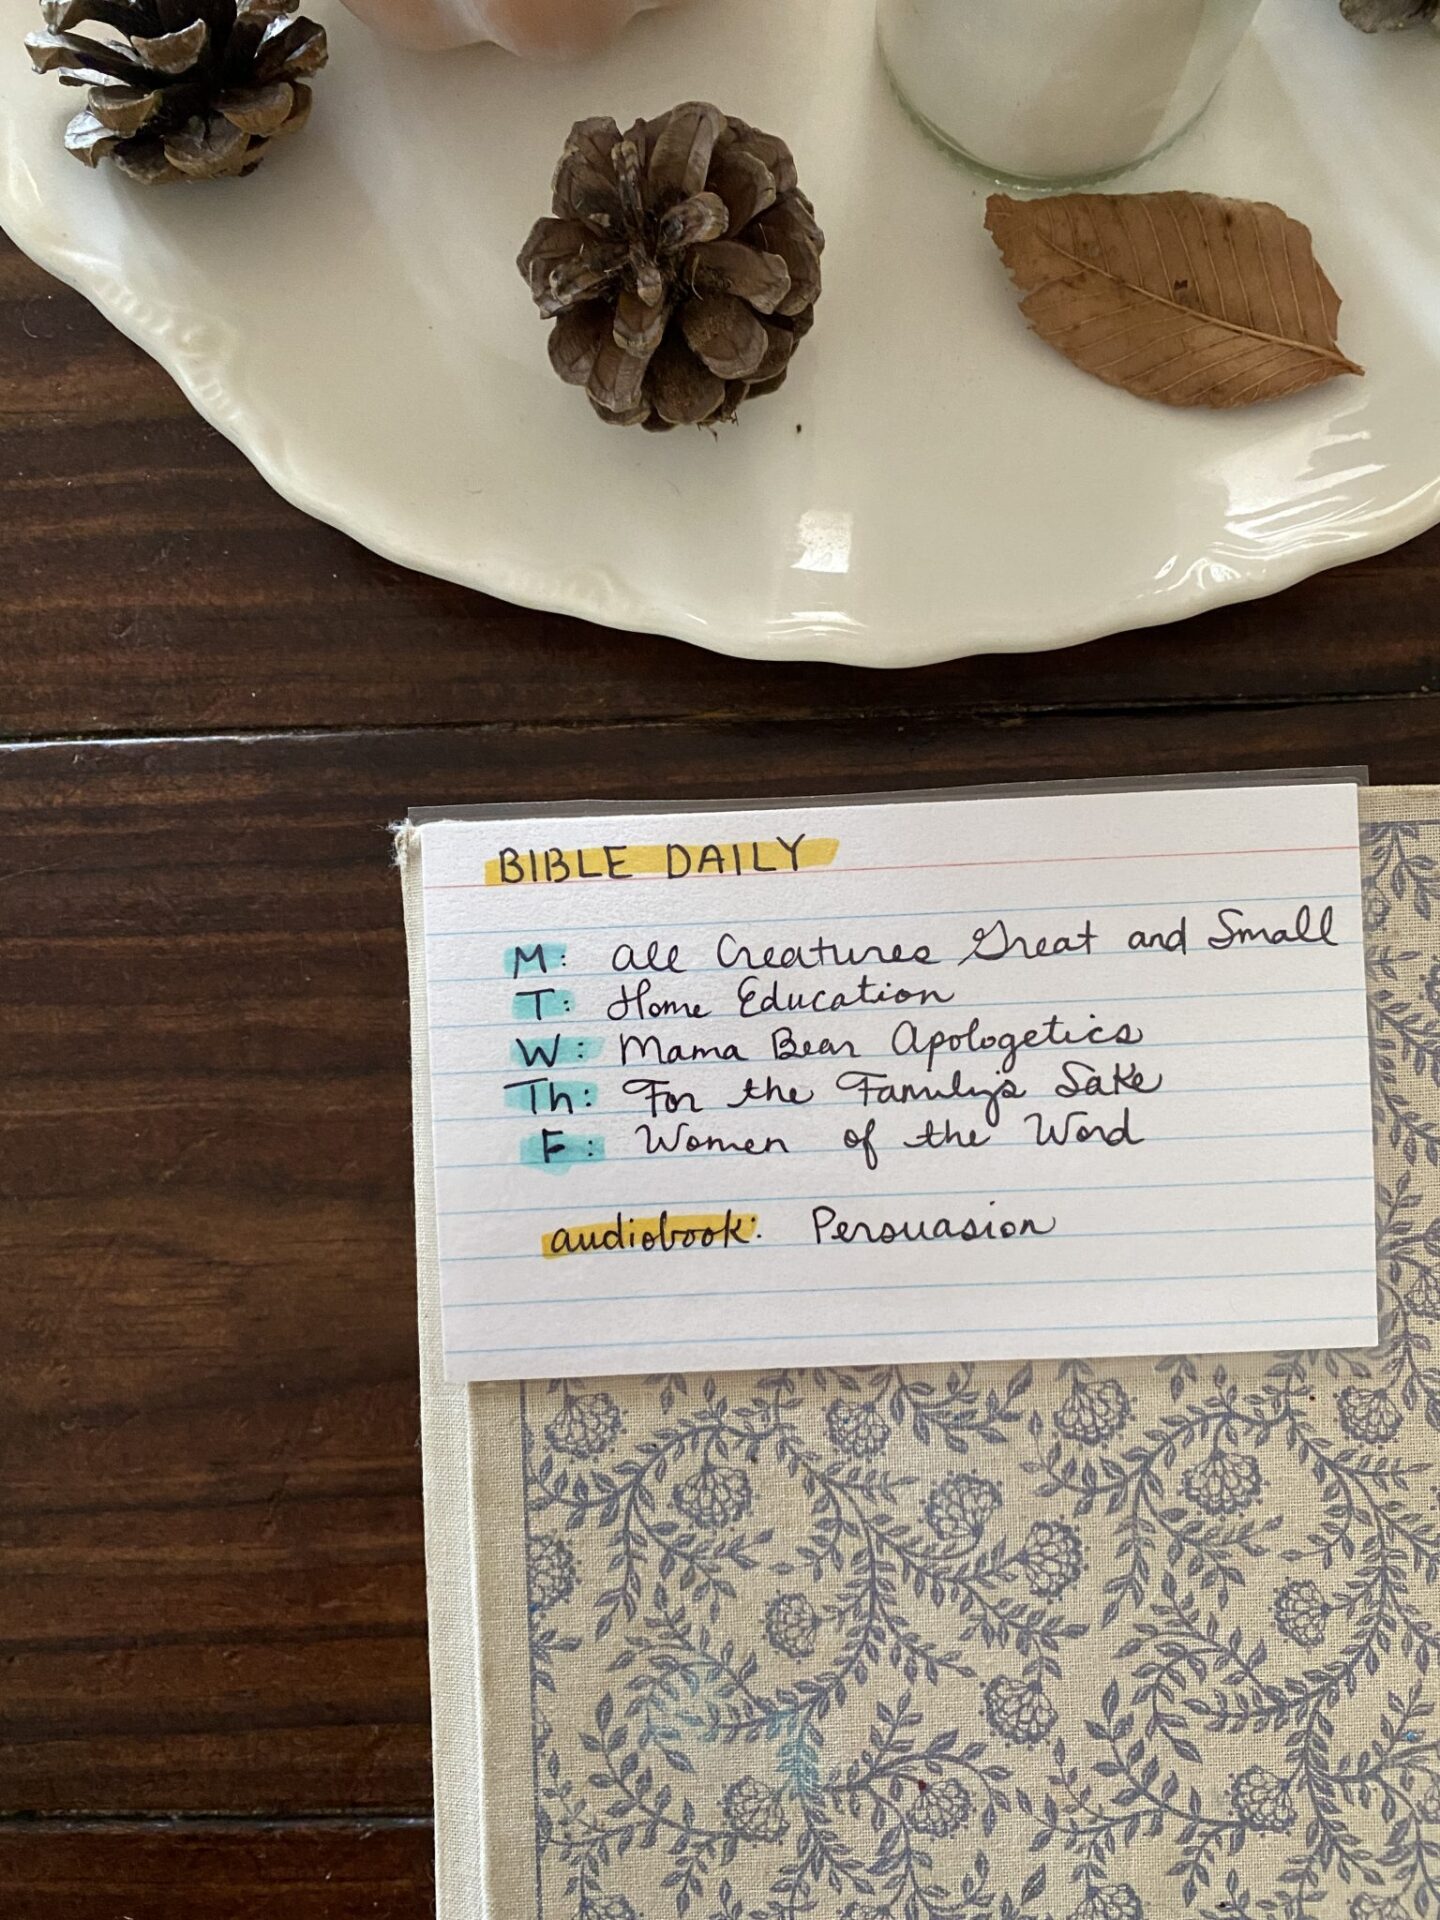 BIBLE DAILY
M: All Creatures Great and Small
T: Home Education
W: Mama Bear Apologetics
Th: For the Family's Sake
F: Women of the Word
audiobook: Persuasion